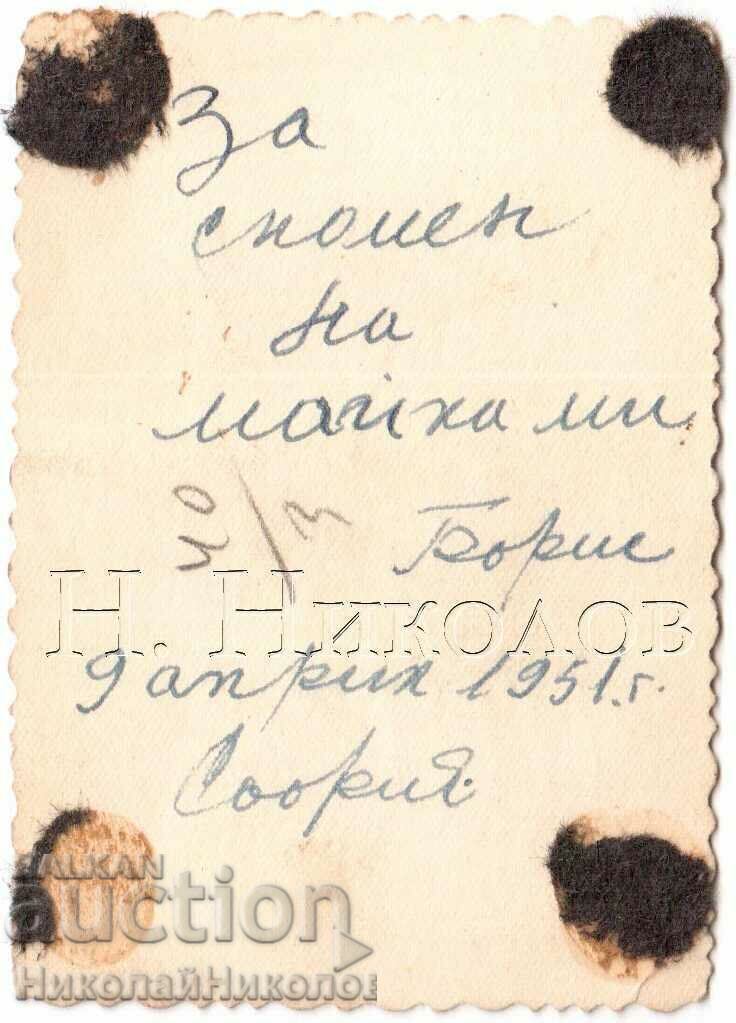 За
спомен
на
майка ми
40/3
Борис
Н. Николов
9 април 1951.г.
София.
BALKAN
auction
НиколайНиколов